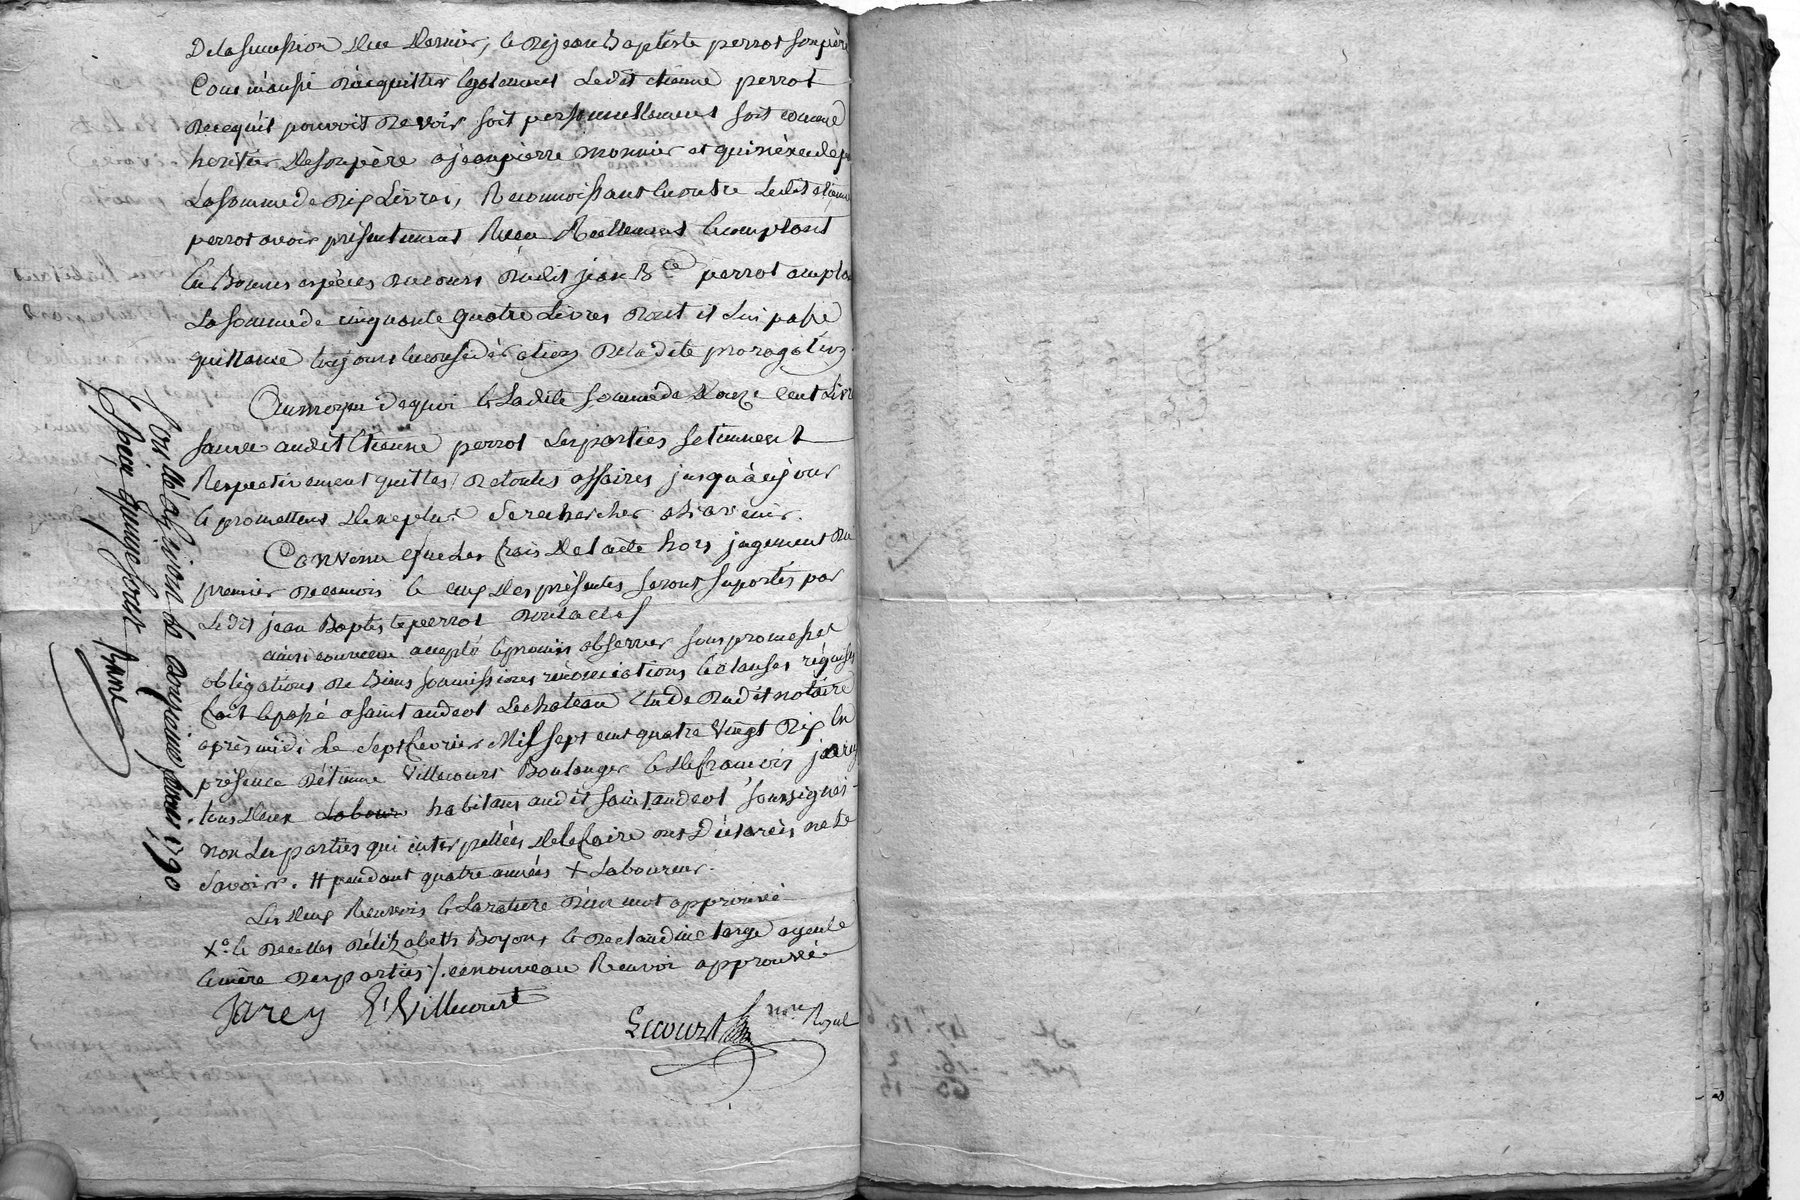 De la succession dud dernier, le dit jean Baptiste perrot son père
Comm'aussi d'acquitter egalement ledit etienne perrot
de ce qu'il pouvoit devoir soit personnellement soit comme
heritier de son père a jean pierre monnier et qui n'éxcede pas
La somme de dix Livres, Reconnoissant en outre Ledit etienne
perrot avoir présentement Reçu Réellement comptant
en Bonnes espèces de cours dudit jean Bte perrot
La somme de cinquante quatre Livres dont il lui passe
quittance toujours en considération de la dite
Au moyen de quoi et Ladite somme de douze cent Livres
sauve audit Etienne perrot Les parties se tiennent
Respectivement quittes de toutes affaires jusqu'à ce jour
et promettent de ne plus se rechercher a l'avenir.
Convenu que Les frais de l'acte hors jugement du
premier de ce mois et ceux des présentes seront suportés par
Ledit jean Baptiste perrot
ainsi convenu accepté et promis observer sous promesses
obligations de Biens soumissions rénonciations et clauses réquises
fait et passé a saint andeol Le chateau étude dudit notaire
après midi Le sept fevrier Mil sept cent quatre vingt dix en
présence d'étienne Villecourt Boulanger et de francois jarey
tous deux habitans audit saint andeol soussignés
non Les parties qui interpellées de le faire ont déclarés ne le
savoir. # pendant quatre années + Laboureur.
Les deux Renvois et La rature d'un mot approuvé
X° et de celles d'élizabeth Boyon, et de claudine large ayeule
et mère des parties /. ce nouveau Renvoi approuvé
Jarey E Villecourt
Lecourt nre Royal
1790
Reçu quinze sous